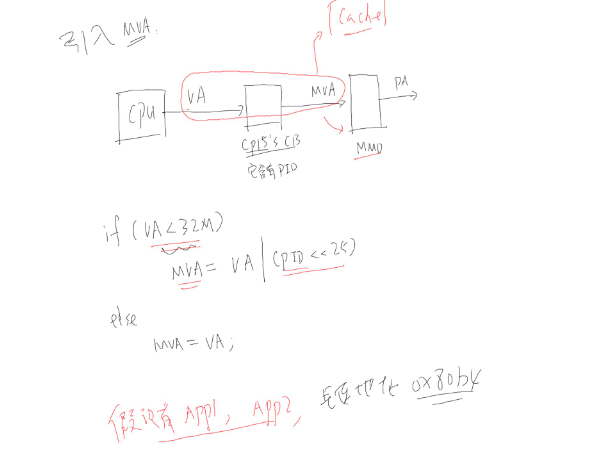 引入 MVA.
Cache
CPU
VA
MVA
PA
CP15's C13
它含有PID
MMU
if (VA<32M)
MVA = VA | (PID << 25)
else
MVA = VA;
假设有 APP1, APP2, 链接地址 0x80b4